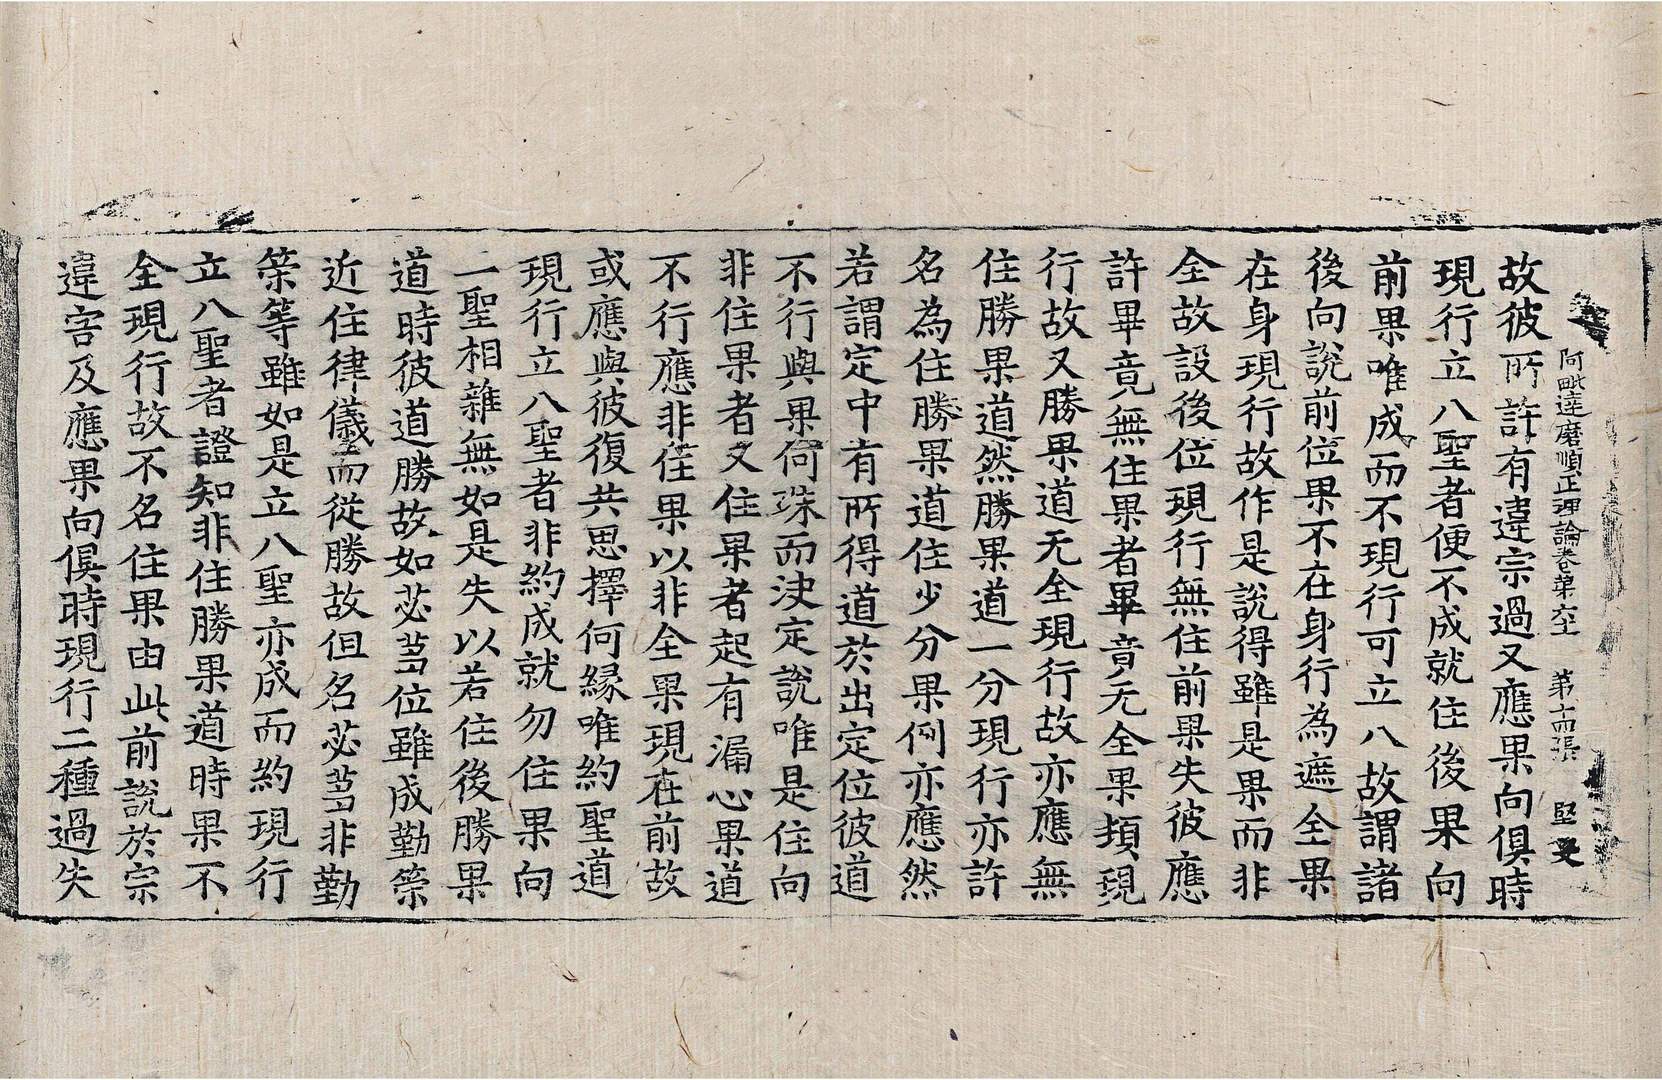 阿毗達磨順正理論卷第六五 第十四張 堅
故彼所許有違宗過又應果向俱時
現行立八聖者便不成就住後果向
前果唯成而不現行可立八故謂諸
後向說前位果不在身行為遮全果
在身現行故作是說得雖是果而非
全故設後位現行無住前果失彼應
許畢竟無住果者畢竟无全果頻現
行故又勝果道无全現行故亦應無
住勝果道然勝果道一分現行亦許
名為住勝果道住少分果例亦應然
若謂定中有所得道於出定位彼道
不行與果何殊而決定說唯是住向
非住果者又住果者起有漏心果道
不行應非住果以非全果現在前故
或應與彼復共思擇何緣唯約聖道
現行立八聖者非約成就勿住果向
一聖相雜無如是失以若住後勝果
道時彼道勝故如苾芻位雖成勤策
近住律儀而從勝故但名苾芻非勤
策等雖如是立八聖亦成而約現行
立八聖者證知非住勝果道時果不
全現行故不名住果由此前說於宗
違害及應果向俱時現行二種過失